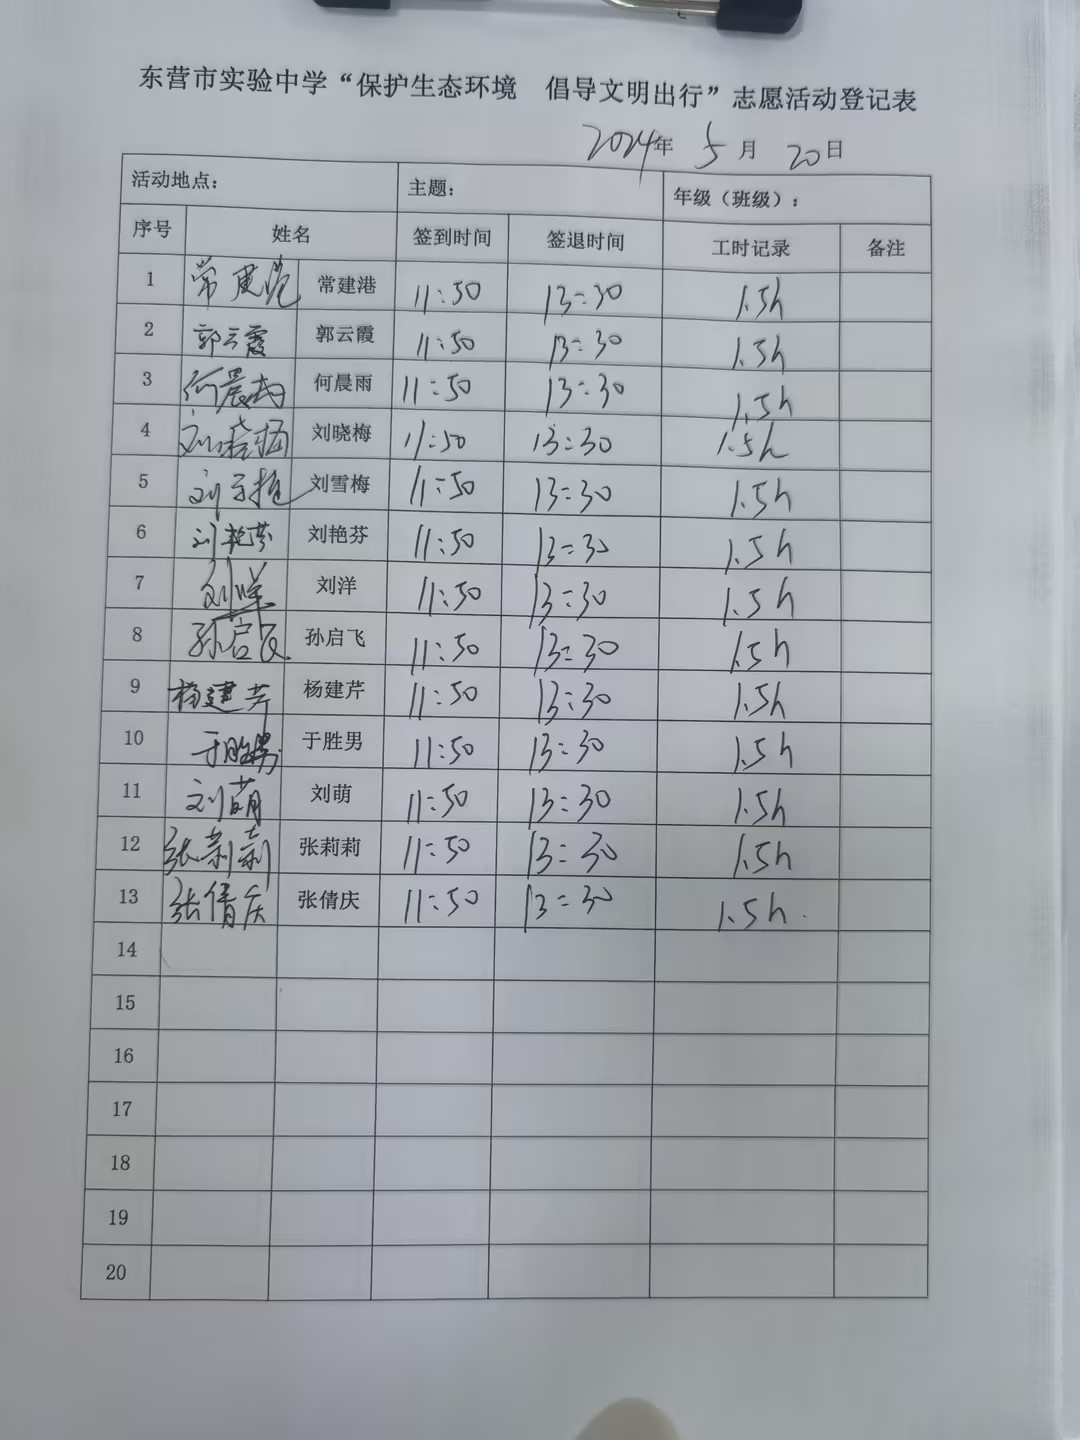 东营市实验中学“保护生态环境 倡导文明出行”志愿活动登记表
2024年 5 月 20日
活动地点： 主题： 年级（班级）：
序号 姓名 签到时间 签退时间 工时记录 备注
1 常建港 常建港 11:50 13:30 1.5h
2 郭云霞 郭云霞 11:50 13:30 1.5h
3 何晨雨 何晨雨 11:50 13:30 1.5h
4 刘晓梅 刘晓梅 11:50 13:30 1.5h
5 刘雪梅 刘雪梅 11:50 13:30 1.5h
6 刘艳芬 刘艳芬 11:50 13:30 1.5h
7 刘洋 刘洋 11:50 13:30 1.5h
8 孙启飞 孙启飞 11:50 13:30 1.5h
9 杨建芹 杨建芹 11:50 13:30 1.5h
10 于胜男 于胜男 11:50 13:30 1.5h
11 刘萌 刘萌 11:50 13:30 1.5h
12 张莉莉 张莉莉 11:50 13:30 1.5h
13 张倩庆 张倩庆 11:50 13:30 1.5h.
14
15
16
17
18
19
20